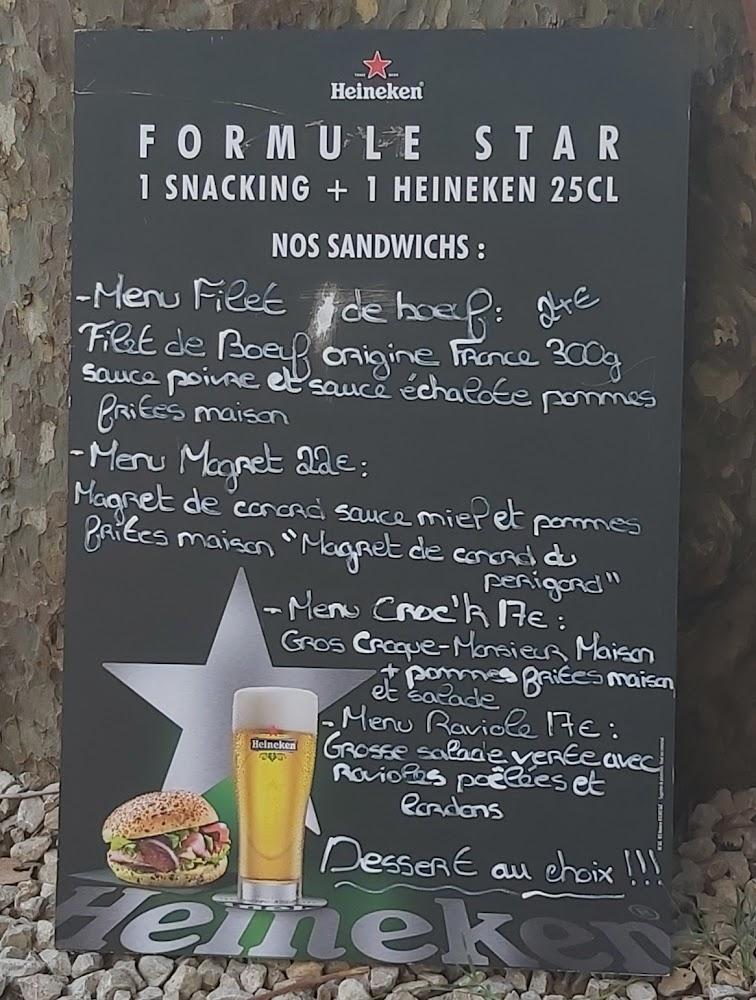 Heineken
FORMULE STAR
1 SNACKING + 1 HEINEKEN 25CL
NOS SANDWICHS :
- Menu Filet de boeuf : 24€
Filet de Boeuf origine France 300g
sauce poivre et sauce échalote pommes
frites maison
- Menu Magret 22€ :
Magret de canard sauce miel et pommes
frites maison "Magret de canard du
perigord"
- Menu Croc'k 17€ :
Gros Croque-Monsieur Maison
+ pommes frites maison
et salade
- Menu Raviole 17€ :
Grosse salade verte avec
Ravioles poêlées et
lardons
Dessert au choix !!!
Heineken
Heineken